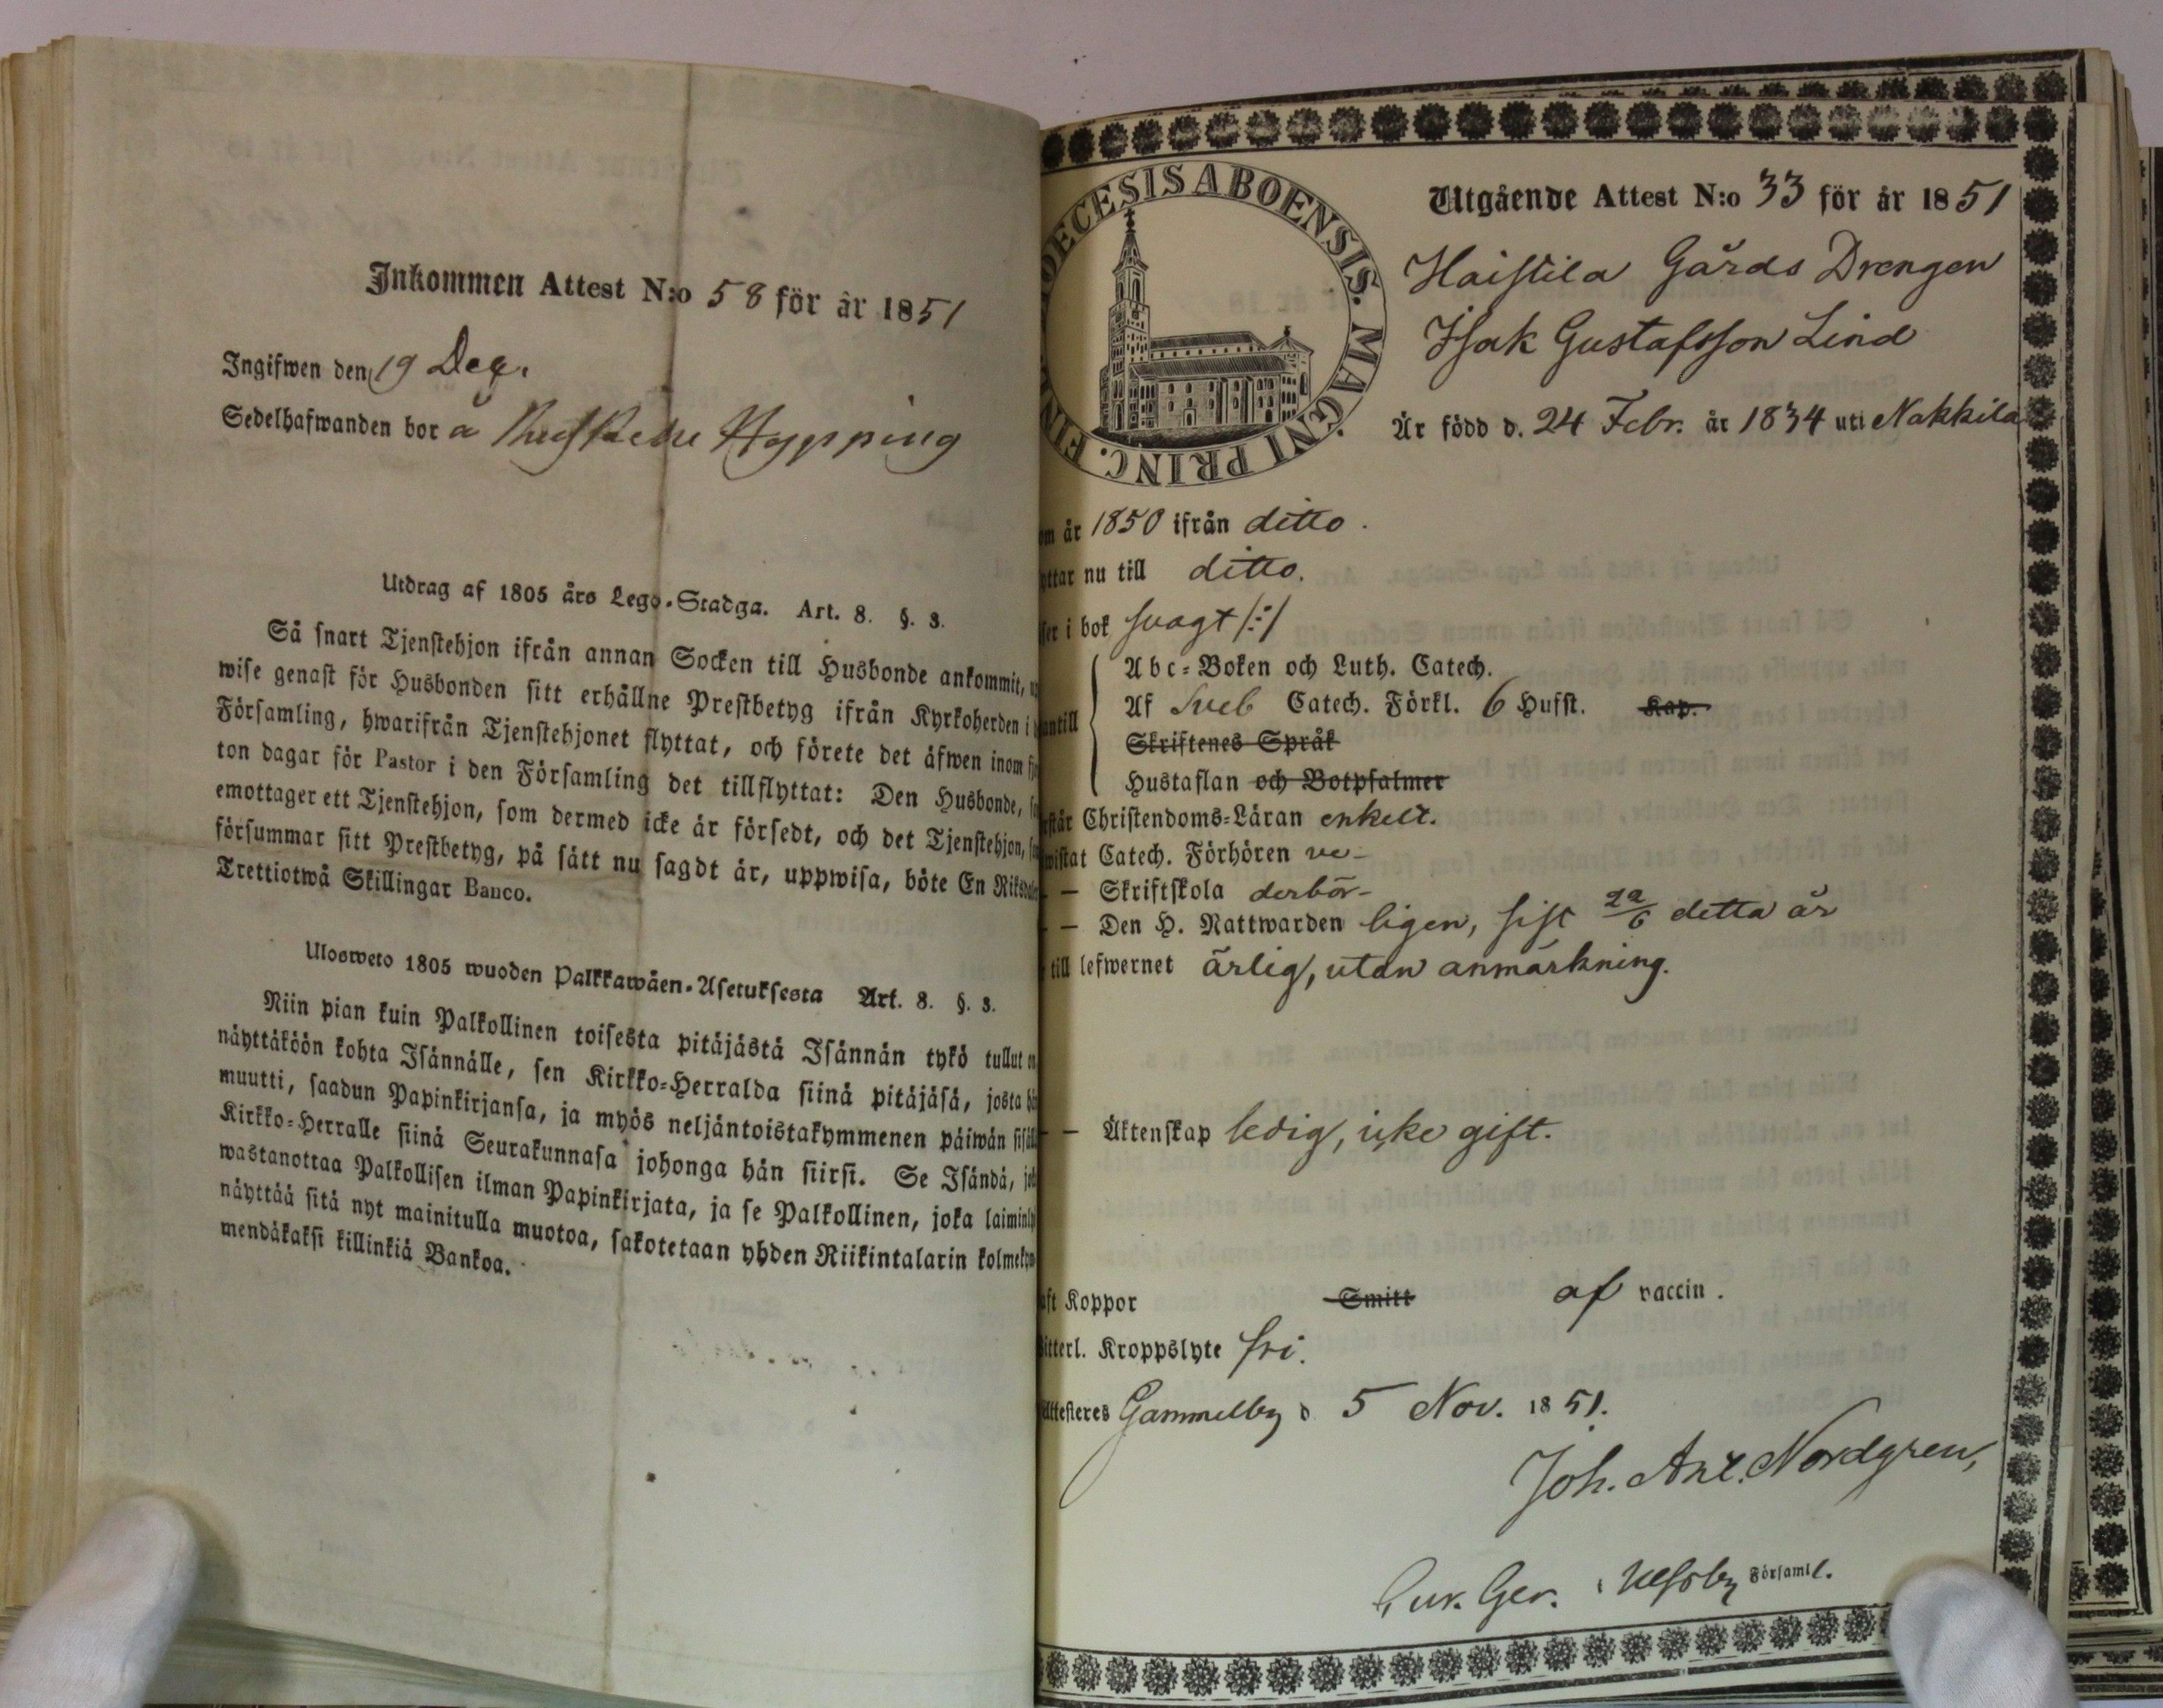 Inkommen Attest N:o 58 för år 1851
Ingifwen den 19 Dec.
Sedelhafwanden bor å
Utdrag af 1805 års Lego-Stadga. Art. 8. §. 3.
Så snart Tjenstehjon ifrån annan Socken till Husbonde ankommit,
wise genast för Husbonden sitt erhållne Prestbetyg ifrån Kyrkoherden i
Församling, hwarifrån Tjenstehjonet flyttat, och förete det äfwen inom
ton dagar för Pastor i den Församling det tillflyttat: Den Husbonde,
emottager ett Tjenstehjon, som dermed icke är försedt, och det Tjenstehjon,
försummar sitt Prestbetyg, på sätt nu sagdt är, uppwisa, böte En Riksdaler
Trettiotwå Skillingar Banco.
Ulosweto 1805 wuoden Palkkawäen-Asetuksesta Art. 8. §. 3.
Niin pian kuin Palkollinen toisesta pitäjästä Isännän tykö tullut on
näyttäköön kohta Isännälle, sen Kirkko-Herralda siinä pitäjäsä, josta hän
muutti, saadun Papinkirjansa, ja myös neljäntoistakymmenen päiwän sisäll
Kirkko-Herralle siinä Seurakunnasa johonga hän siirsi. Se Isändä, jok
wastanottaa Palkollisen ilman Papinkirjata, ja se Palkollinen, joka laiminly
näyttää sitä nyt mainitulla muotoa, sakotetaan yhden Riikintalarin kolmekym
mendäkaksi killinkiä Bankoa.
DIOECESIS ABOENSIS. MAGNI PRINC. FINL.
Utgående Attest N:o 33 för år 1851
Haistila Gårds Drengen
Isak Gustafsson Lind
Är född d. 24 Febr. år 1834 uti Nakkila
om år 1850 ifrån ditto.
yttar nu till ditto.
ser i bok svagt /:/
Abc-Boken och Luth. Catech.
antill Af Sveb Catech. Förkl. 6 Hufst. Kap.
Skriftenes Språk
Hustaflan och Botpsalmer
står Christendoms-Läran enkelt.
wistat Catech. Förhören ve-
— Skriftskola derbör-
— Den H. Nattwarden ligen, sist 22/6 detta år
till lefwernet ärlig, utan anmärkning.
— Äktenskap ledig, icke gift.
aft Koppor Smitt af vaccin.
itterl. Kroppslyte fri.
Attesteres Gammelby d. 5 Nov. 1851.
Joh. Axl. Nordgren,
Cur. Ger. i Ulfsby Församl.